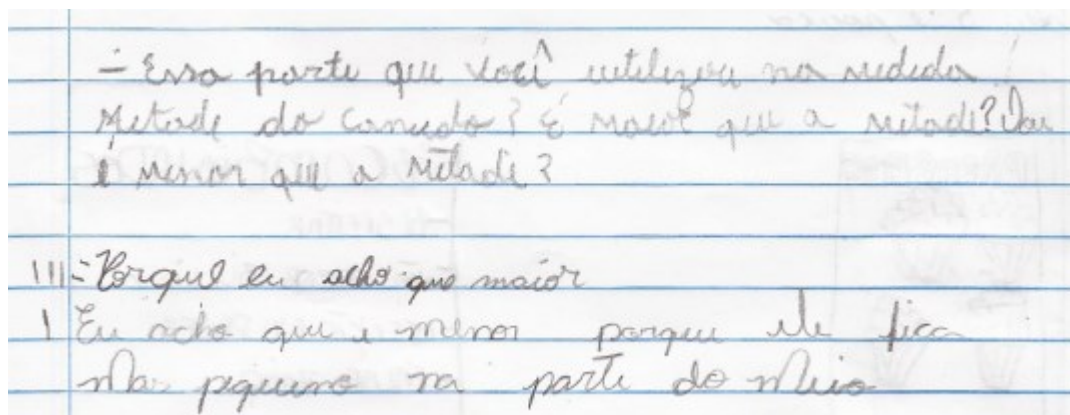 - Essa parte que você utilizou na medida
Metade do canudo? É maior que a metade? Ou
é menor que a metade?
III - Porque eu acho que maior
I Eu acho que e menor porque ele fica
Mas pequeno na parte do Meio